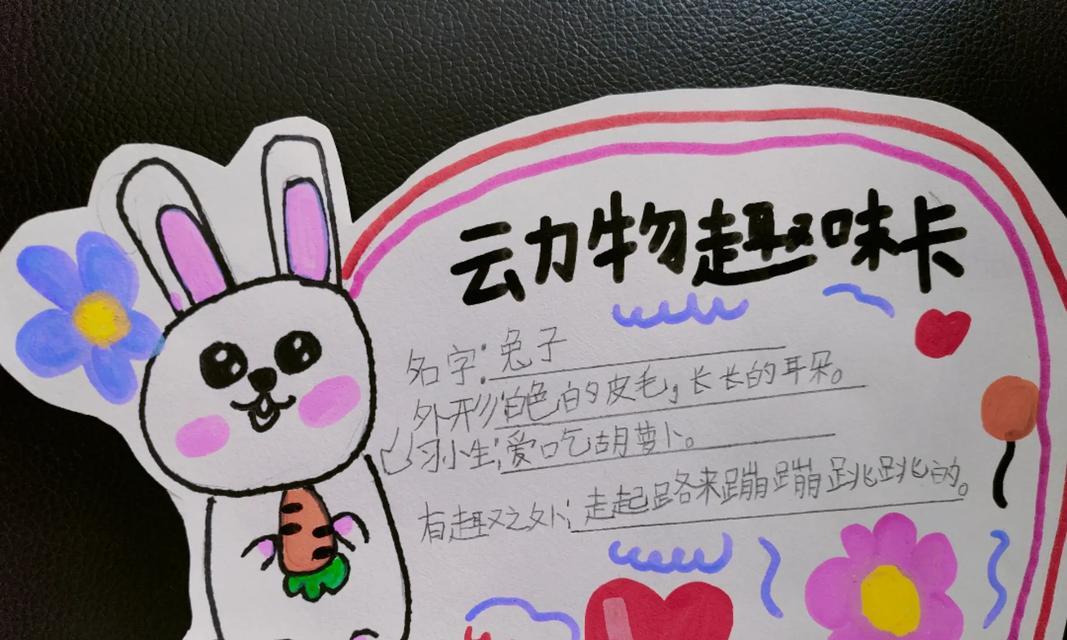 动物趣味卡
名字:兔子
外形:白色的皮毛,长长的耳朵。
习性:爱吃胡萝卜。
有趣之处:走起路来蹦蹦跳跳的。